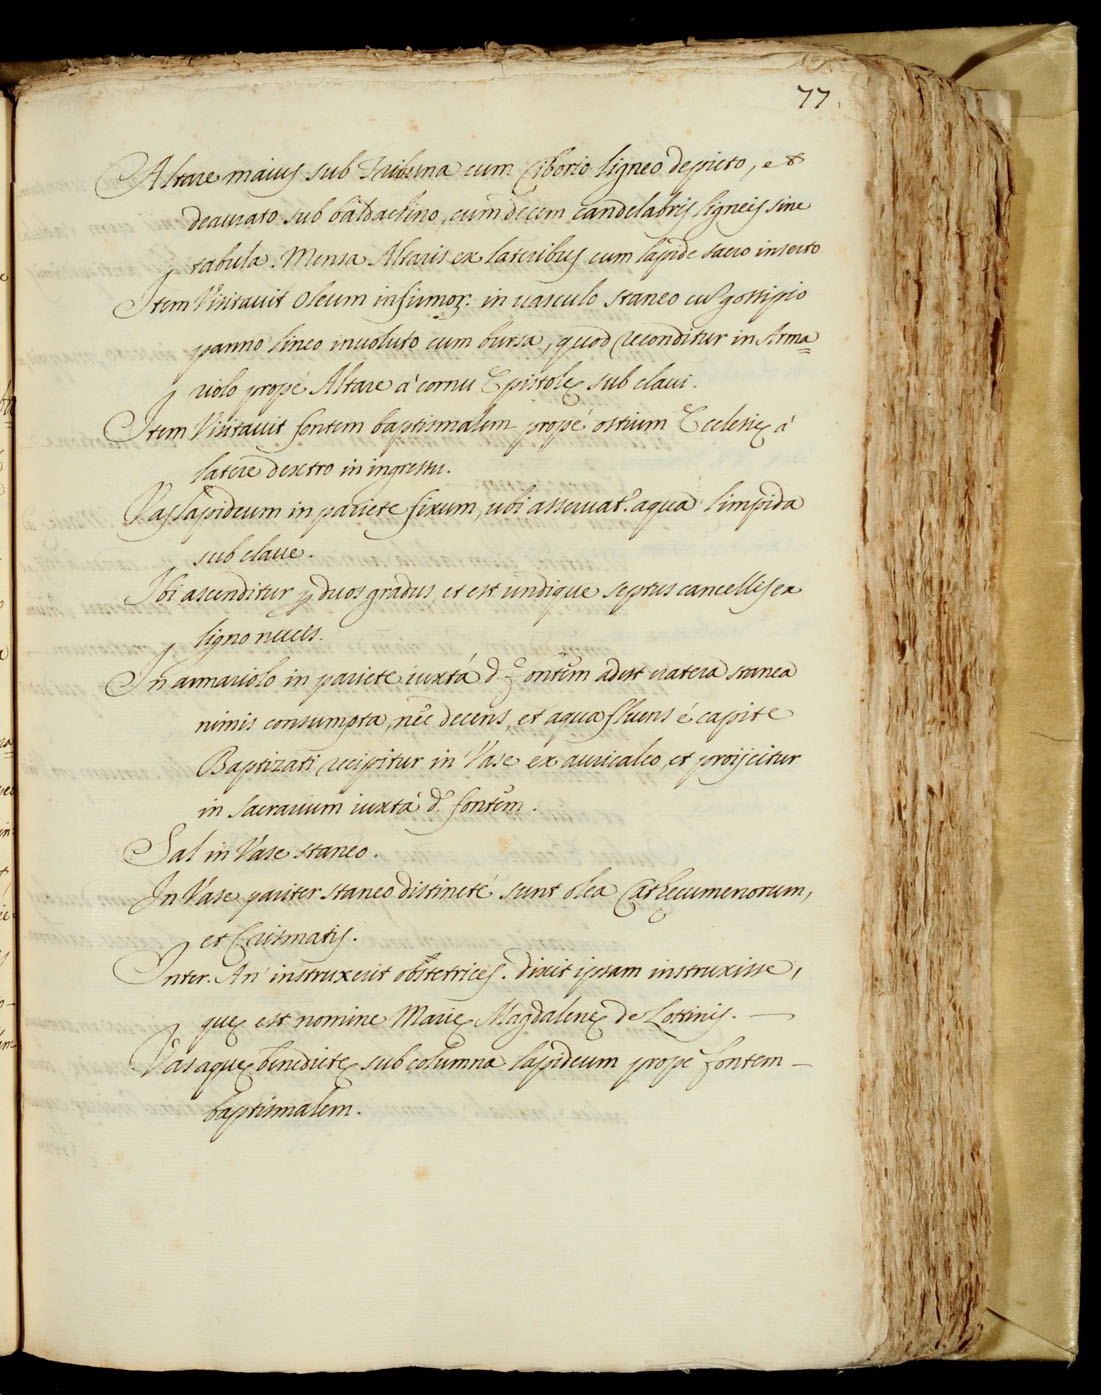 77
Altare maius sub Tribuna cum Ciborio ligneo depicto, et
deaurato sub baldachino, cum decem candelabris ligneis sine
tabula. Mensa Altaris ex lateribus cum lapide sacro inserto
Item Visitauit Oleum infirmor. in uasculo staneo cū gossipio
panno lineo inuoluto cum bursa, quod reconditur in Arma=
riolo propè Altare à cornu Epistolę sub claui.
Item Visitauit fontem baptismalem propè ostium Ecclesię à
latere dextro in ingressu.
Vas lapideum in pariete fixum, ubi asseruat.r aqua limpida
sub claue.
Ibi ascenditur p duos gradus, et est undique septus cancellis ex
ligno nucis.
In armariolo in pariete iuxtà d. fontem adest cratera stanea
nimis consumpta, nec decens, et aqua fluens è capite
Baptizati recipitur in Vase ex auricalco, et proijcitur
in sacrarium iuxtà d. fontem.
Sal in Vase staneo.
In Vase pariter staneo distinctè sunt olea Cathecumenorum,
et Crismatis.
Inter. An instruxerit obstetrices. dixit ipsam instruxisse,
quę est nomine Marię Magdalenę de Lottinis. —
Vas aquę benedictę sub columna lapideum propè fontem —
baptismalem.